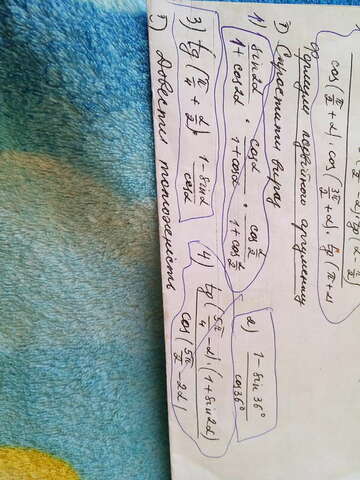 cos(π/2 + α) · cos(3π/2 + α) · tg(π + α)
Формули подвійного аргументу
I) Спростити вираз
1) sin2α / 1 + cos2α · cosα / 1 + cosα · cos α/2 / 1 + cos α/2
2) 1 - sin36° / cos36°
3) tg(π/4 + α/2) · 1 - sinα / cosα
4) tg(5π/4 - α) · (1 + sin2α) / cos(5π/2 - 2α)
Довести тотожність